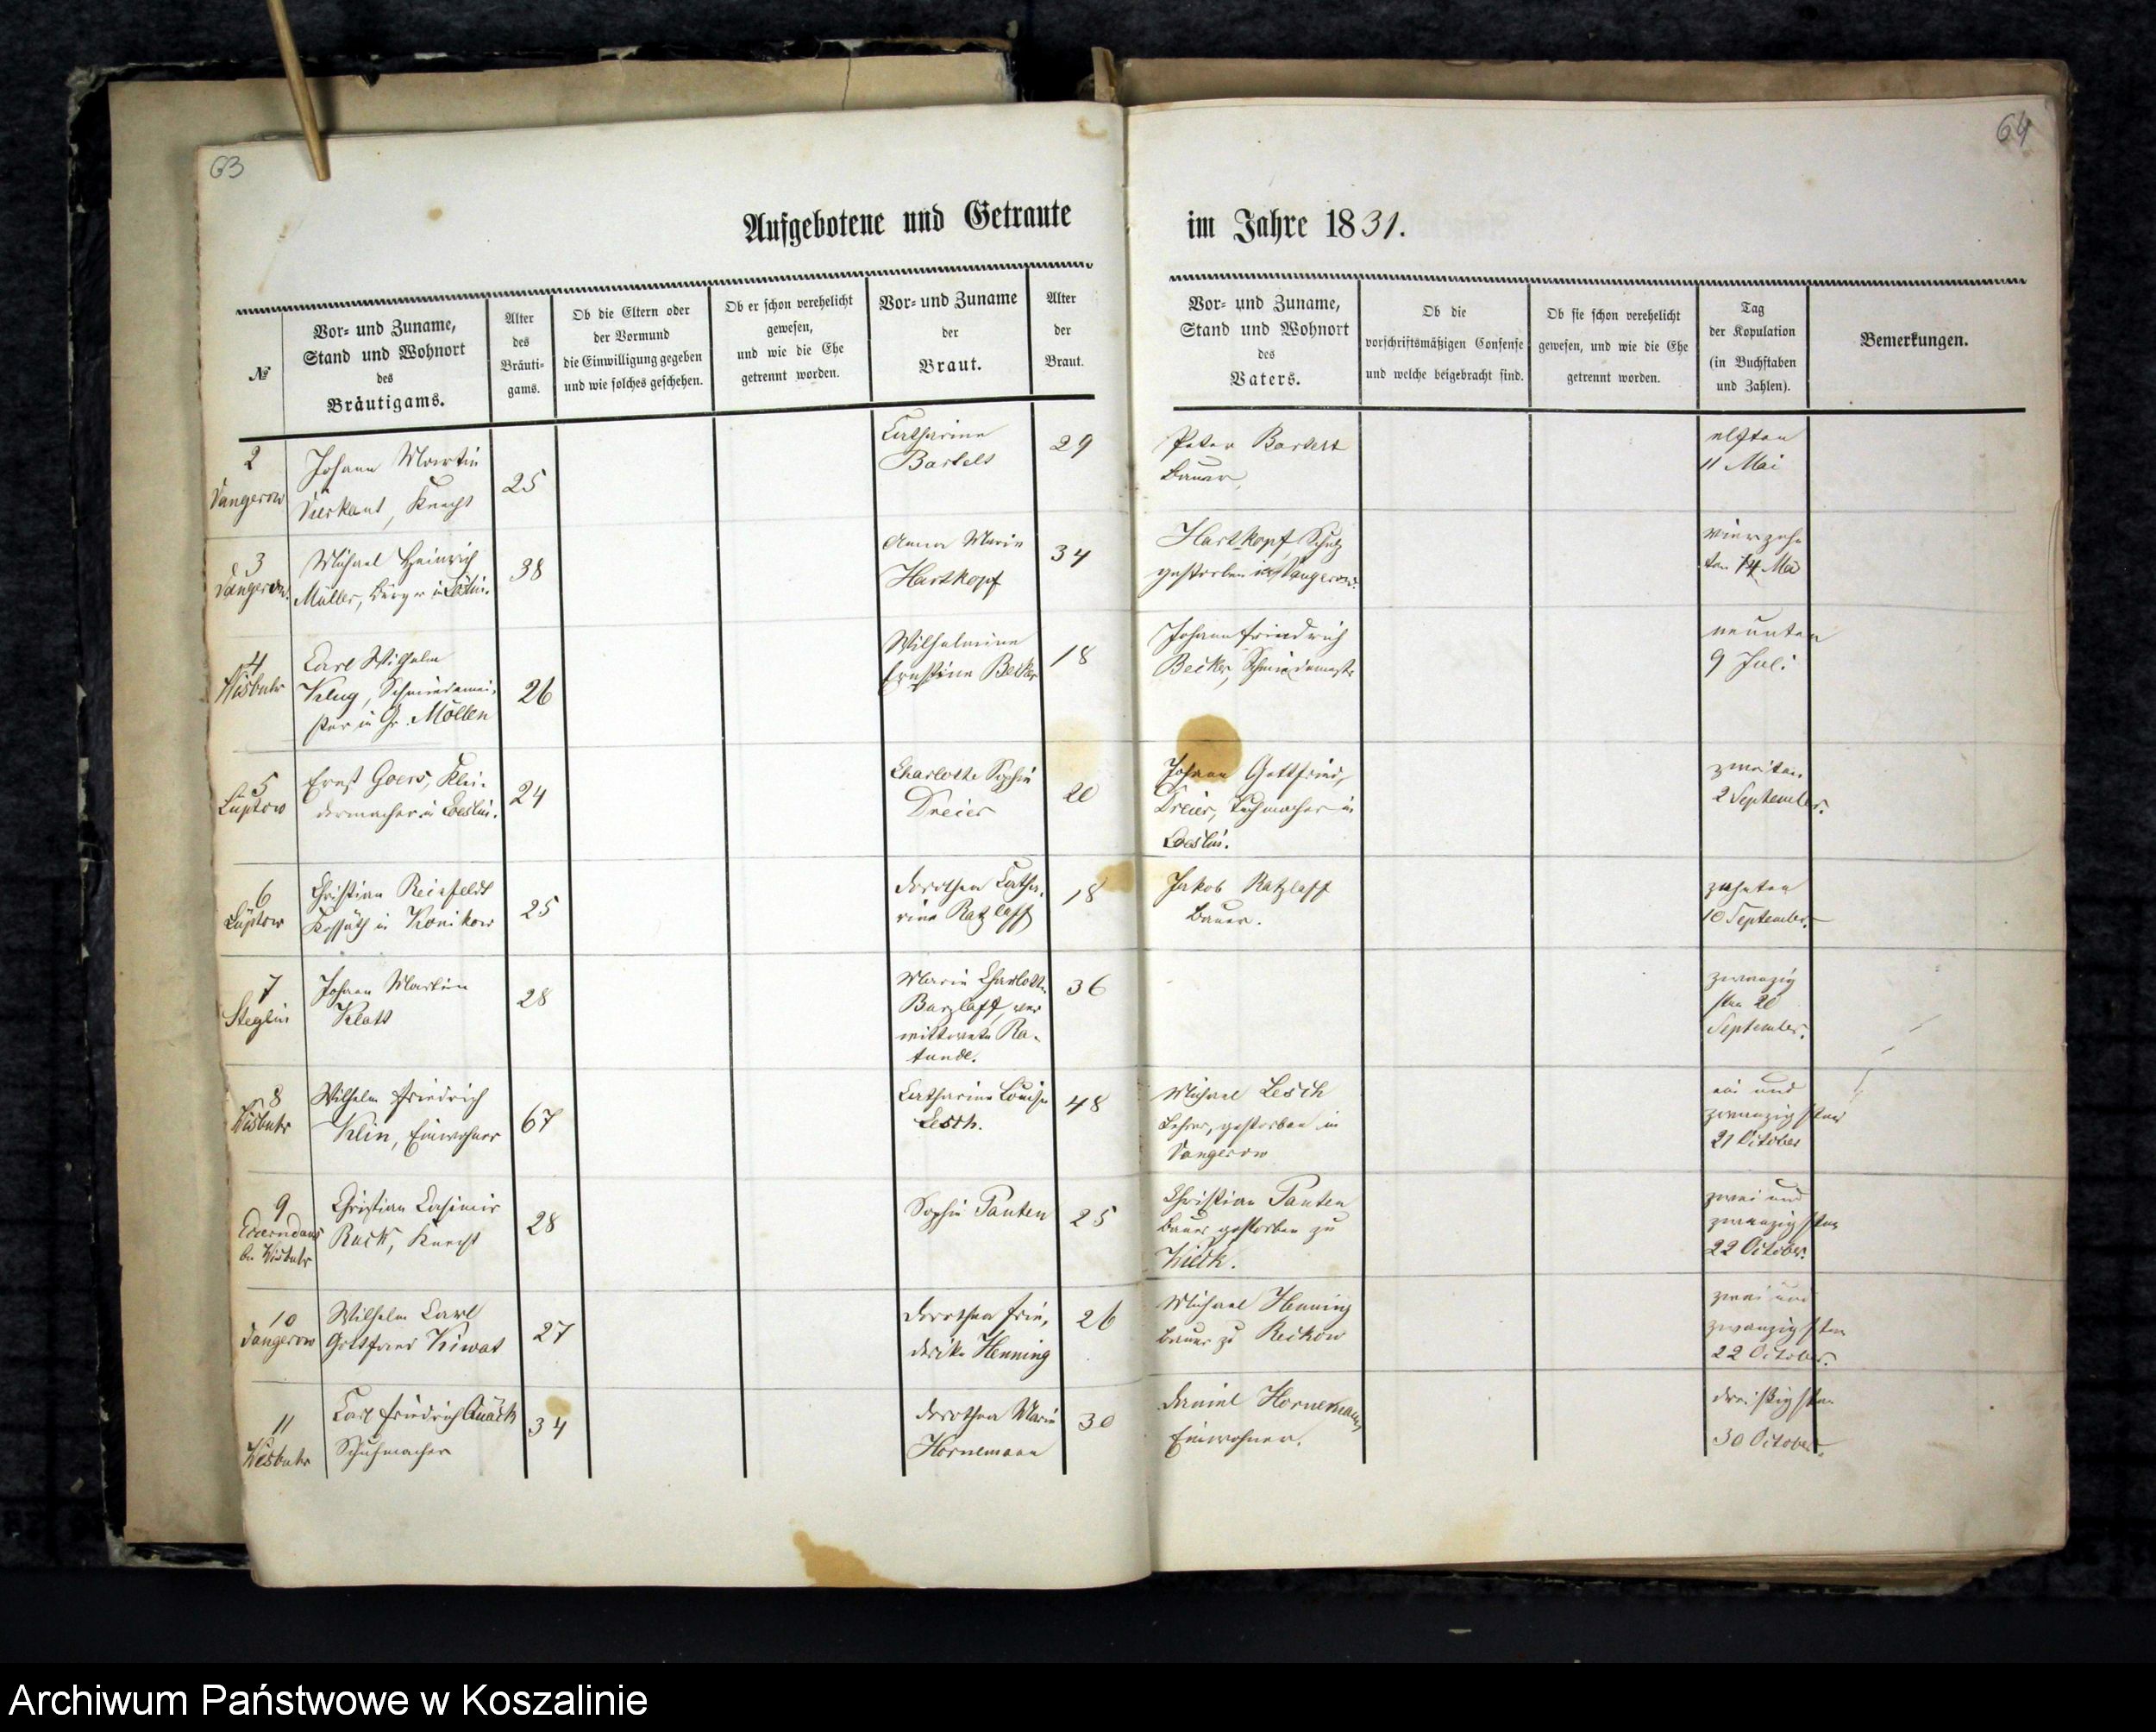 63
64
Aufgebotene und Getraute
im Jahre 1831.
№
Vor- und Zuname,
Stand und Wohnort
des
Bräutigams.
Alter
des
Bräuti-
gams.
Ob die Eltern oder
der Vormund
die Einwilligung gegeben
und wie solches geschehen.
Ob er schon verehelicht
gewesen,
und wie die Ehe
getrennt worden.
Vor- und Zuname
der
Braut.
Alter
der
Braut.
Vor- und Zuname,
Stand und Wohnort
des
Vaters.
Ob die
vorschriftsmäßigen Consense
und welche beigebracht sind.
Ob sie schon verehelicht
gewesen, und wie die Ehe
getrennt worden.
Tag
der Kopulation
(in Buchstaben
und Zahlen).
Bemerkungen.
2
Vangerow
Johann Martin
Vierkant, Knecht
25
Catharine
Bartelt
29
Peter Bartelt
Bauer,
elften
11 Mai
3
Vangerow.
Michael Heinrich
Müller, Bürger in Cöslin.
38
Anna Marie
Hartkopf
34
Hartkopf, Schulz
gestorben in Vangerow.
vierzehn
ten 14 Mai
4
Wisbuhr
Carl Wilhelm
Klug, Schmiedemei-
ster in Gr. Möllen
26
Wilhelmine
Ernstine Becker
18
Johann Friedrich
Becker, Schmiedemstr
neunten
9 Juli
5
Lüptow
Ernst Goers, Klei-
dermacher in Coeslin.
24
Charlotte Sophie
Dreier
20
Johann Gottfried,
Dreier, Tuchmacher in
Coeslin.
zweiten
2 September.
6
Lüptow
Christian Reinfeldt
Kossäth in Konikow
25
Dorothea Catha-
rine Ratzlaff
18
Jakob Ratzlaff
Bauer.
zehnten
10 September.
7
Steglin
Johann Martin
Klatt
28
Marie Charlotte
Barzlaff, ver
wittwete Ra-
tunde.
36
zwanzig
sten 20
September.
8
Wisbuhr
Wilhelm Friedrich
Klin, Einwohner
67
Catharine Louise
Lesch.
48
Michael Lesch
Lehrer, gestorben in
Vangerow
ein und
zwanzigsten
21 October
9
bei Wisbuhr
Christian Casimir
Ruck, Knecht
28
Sophie Panten
25
Christian Panten
Bauer gestorben zu
zwei und
zwanzigsten
22 October.
10
Vangerow
Wilhelm Carl
Gottfried Kiwat
27
Dorothea Frie-
derike Henning
26
Michael Henning
Bauer zu Reckow
zwei und
zwanzigsten
22 October.
11
Wisbuhr
Carl Friedrich Quäck
Schuhmacher
34
Dorothea Marie
Hornemann
30
Daniel Hornemann,
Einwohner.
dreißigsten
30 October.
Archiwum Państwowe w Koszalinie